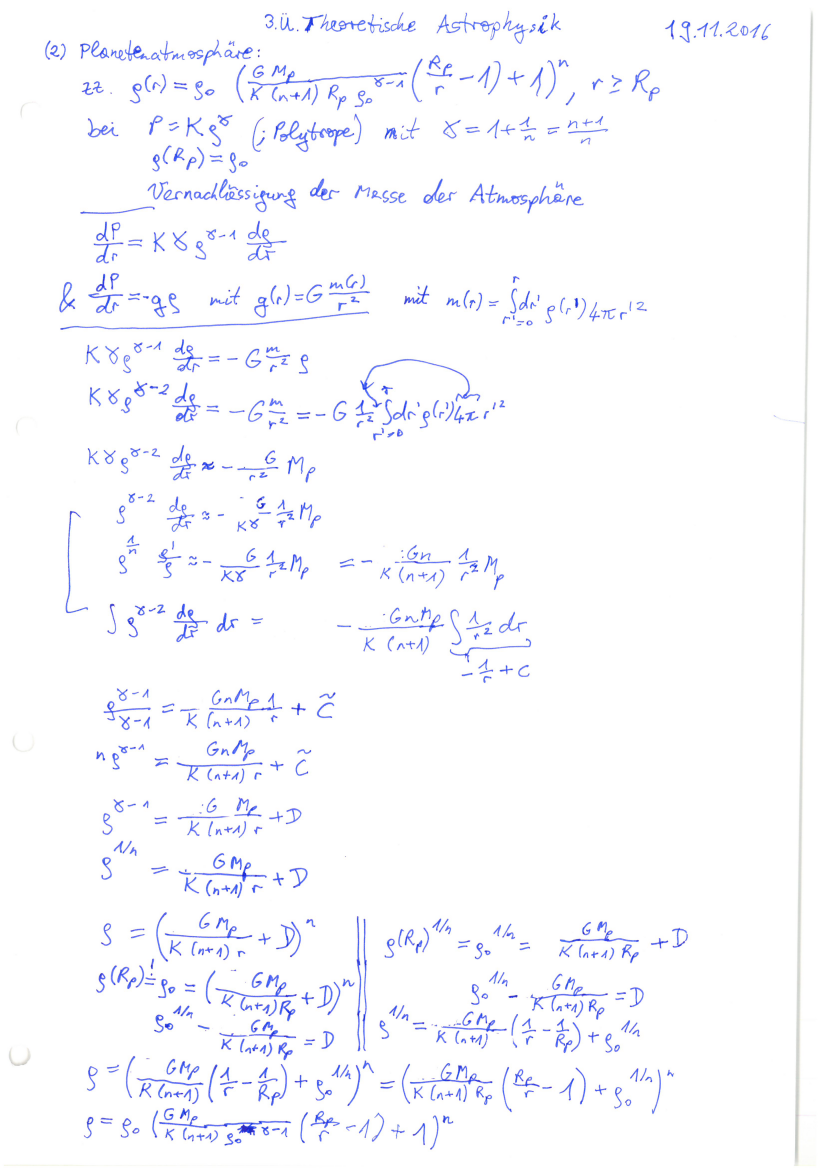 3.Ü. Theoretische Astrophysik 19.11.2016
(2) Planetenatmosphäre:
zz. ρ(r) = ρ₀ (G M_p / (K (n+1) R_p ρ₀^(γ-1)) (R_p/r - 1) + 1)^n, r ≥ R_p
bei P = Kρ^γ (; Polytrope) mit γ = 1 + 1/n = (n+1)/n
ρ(R_p) = ρ₀
Vernachlässigung der Masse der Atmosphäre
dP/dr = Kγρ^(γ-1) dρ/dr
& dP/dr = -gρ mit g(r) = G m(r)/r² mit m(r) = ∫_{r'=0}^{r} dr' ρ(r') 4π r'²
Kγρ^(γ-1) dρ/dr = -G m/r² ρ
Kγρ^(γ-2) dρ/dr = -G m/r² = -G 1/r² ∫_{r'=0}^{r} dr' ρ(r') 4π r'²
Kγρ^(γ-2) dρ/dr ≈ - G/r² M_p
ρ^(γ-2) dρ/dr ≈ - G/(Kγ) 1/r² M_p
ρ^(1/n) ρ'/ρ ≈ - G/(Kγ) 1/r² M_p = - Gn/(K (n+1)) 1/r² M_p
∫ρ^(γ-2) dρ/dr dr = - GnM_p/(K (n+1)) ∫ 1/r² dr
-1/r + C
ρ^(γ-1)/(γ-1) = GnM_p/(K (n+1)) 1/r + C̃
nρ^(γ-1) = GnM_p/(K (n+1) r) + C̃
ρ^(γ-1) = G M_p/(K (n+1) r) + D
ρ^(1/n) = GM_p/(K (n+1) r) + D
ρ = (GM_p/(K (n+1) r) + D)^n || ρ(R_p)^(1/n) = ρ₀^(1/n) = GM_p/(K (n+1) R_p) + D
ρ(R_p) =! ρ₀ = (GM_p/(K (n+1) R_p) + D)^n || ρ₀^(1/n) - GM_p/(K (n+1) R_p) = D
ρ₀^(1/n) - GM_p/(K (n+1) R_p) = D || ρ^(1/n) = GM_p/(K (n+1)) (1/r - 1/R_p) + ρ₀^(1/n)
ρ = (GM_p/(K (n+1)) (1/r - 1/R_p) + ρ₀^(1/n))^n = (GM_p/(K (n+1) R_p) (R_p/r - 1) + ρ₀^(1/n))^n
ρ = ρ₀ (GM_p/(K (n+1) ρ₀^(γ-1)) (R_p/r - 1) + 1)^n